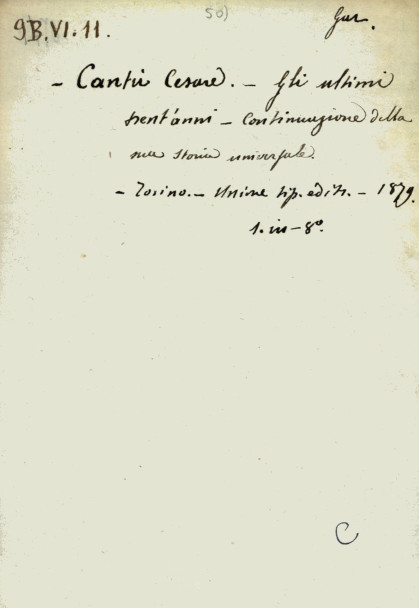 50)
9B.VI.11. Gar.
- Cantù Cesare. - Gli ultimi
trent'anni - Continuazione della
sua storia universale.
- Torino. - Unione tip. edit. - 1879.
1. in - 8°.
C